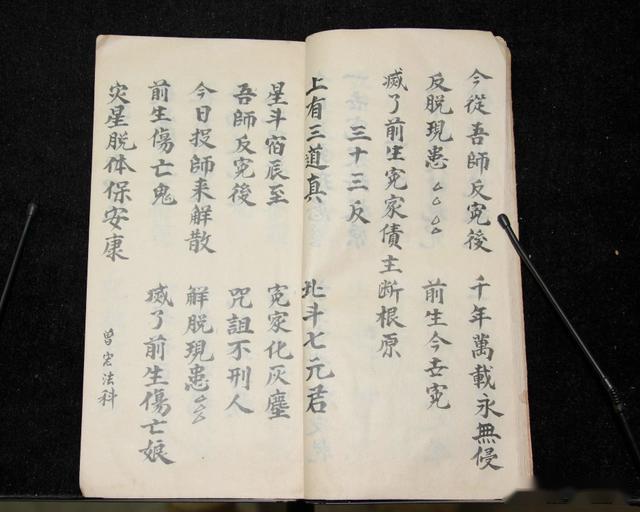 今從吾師反冤後 千年萬載永無侵
反脱現患 前生今世冤
滅了前生冤家債主斷根原
三十三反
上有三道真 北斗七元君
星斗宿辰至 冤家化灰塵
吾師反冤後 咒詛不刑人
今日投師来解散 解脱現患
前生傷亡鬼 滅了前生傷亡娘
灾星脱体保安康
曾宏法科